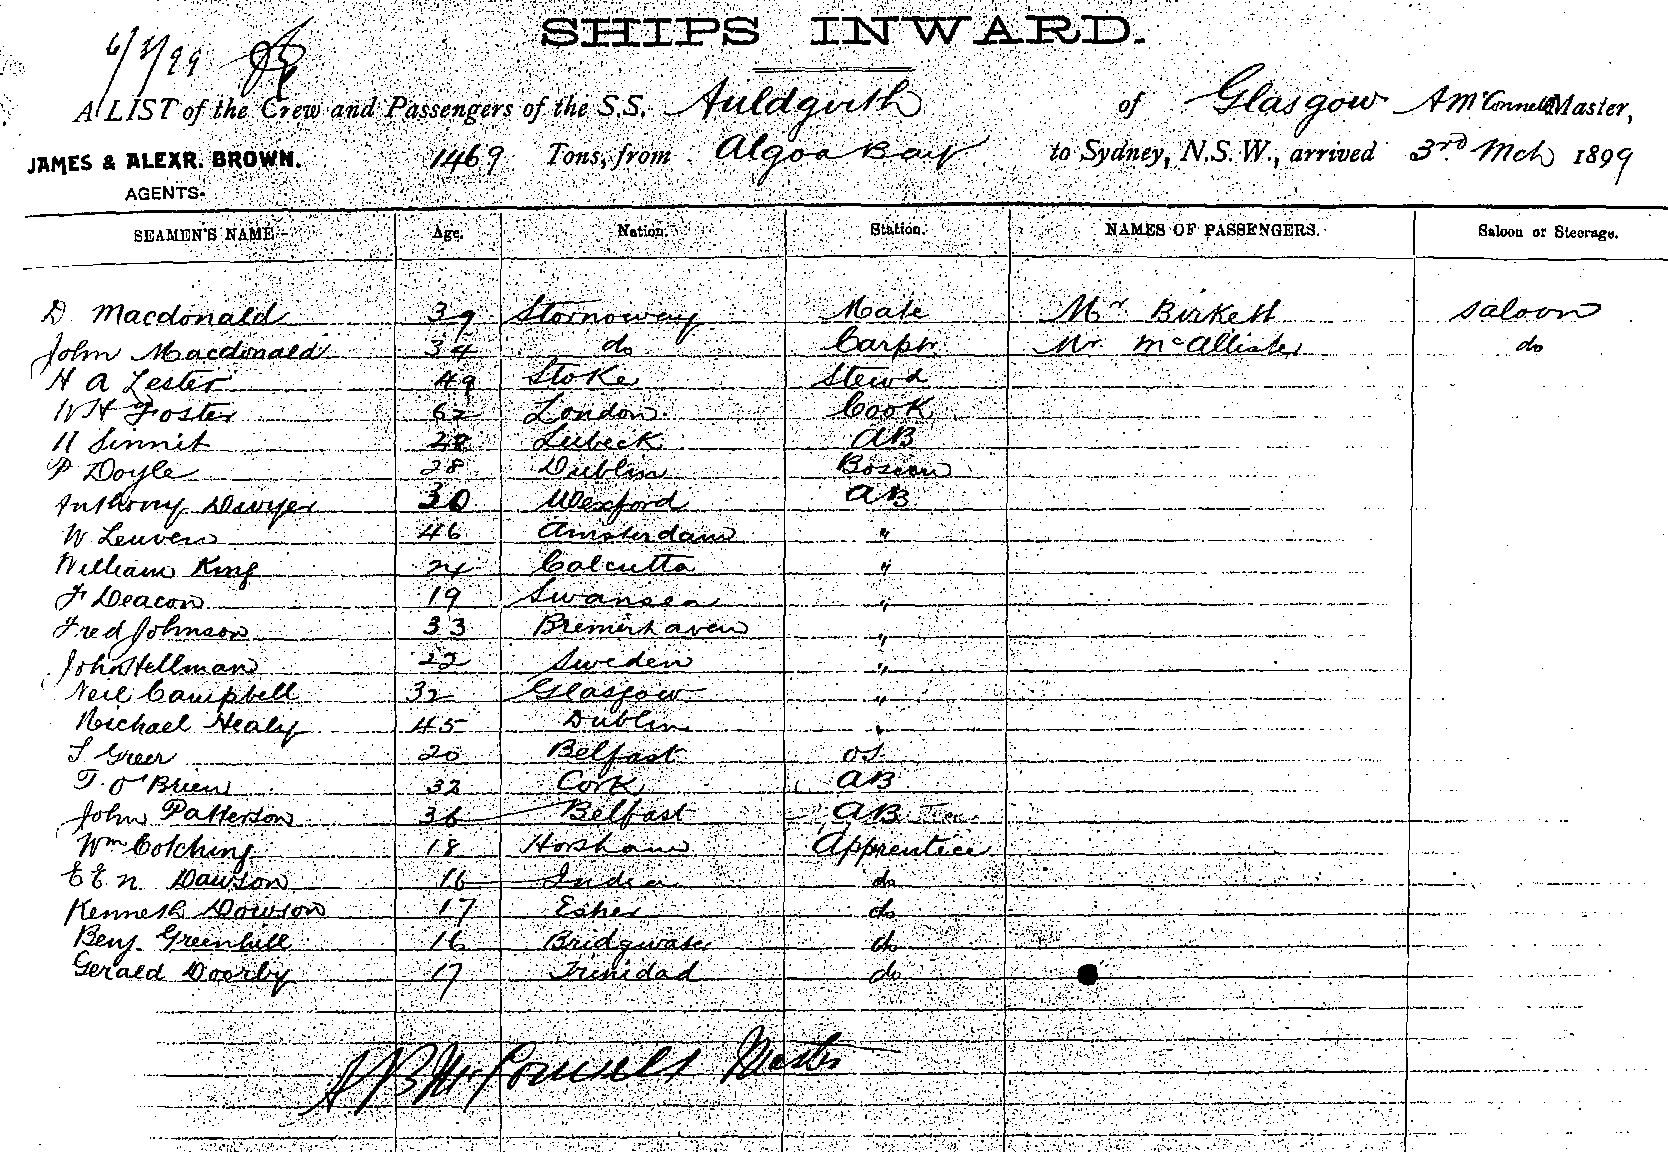 SHIPS INWARD.
6/3/99
A LIST of the Crew and Passengers of the S.S. Auldgirth of Glasgow A McConnell Master,
JAMES & ALEXR. BROWN. 1469 Tons, from Algoa Bay to Sydney, N.S.W., arrived 3rd Mch 1899
AGENTS.
SEAMEN'S NAME Age. Nation. Station. NAMES OF PASSENGERS. Saloon or Steerage.
D Macdonald 39 Stornoway Mate Mr Birkett Saloon
John Macdonald 34 do Carptr Mr McAllister do
H A Lester 49 Stoke Stewd
W H Foster 62 London Cook
H Sinnit 28 Lubeck AB
P Doyle 28 Dublin Bosun
Anthony Dwyer 30 Wexford AB
W Leuven 46 Amsterdam "
William King 24 Calcutta "
F Deacon 19 Swansea "
Fred Johnson 33 Bremerhaven "
John Hellman 22 Sweden "
Neil Campbell 32 Glasgow "
Michael Healy 45 Dublin "
S Greer 20 Belfast OS
T. O'Brien 32 Cork AB
John Patterson 36 Belfast AB
Wm Cotching 18 Horsham Apprentice
E E N Dawson 16 India do
Kenneth Dowson 17 Esher do
Benj. Greenhill 16 Bridgwater do
Gerald Doorly 17 Trinidad do
A B McConnell Master